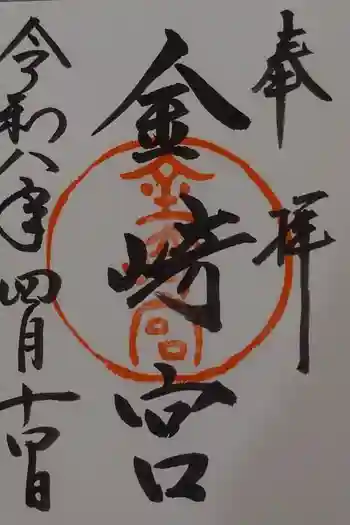 奉拝
金崎宮
金崎宮
令和八年四月十四日